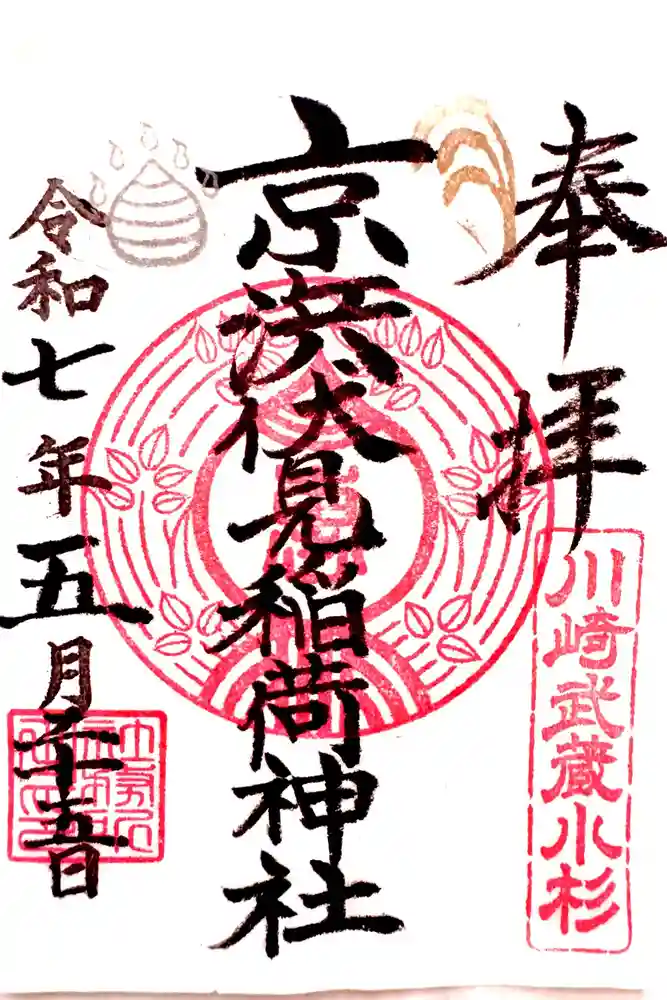 奉拝
川崎武蔵小杉
京濱伏見稲荷神社
令和七年五月二十五日